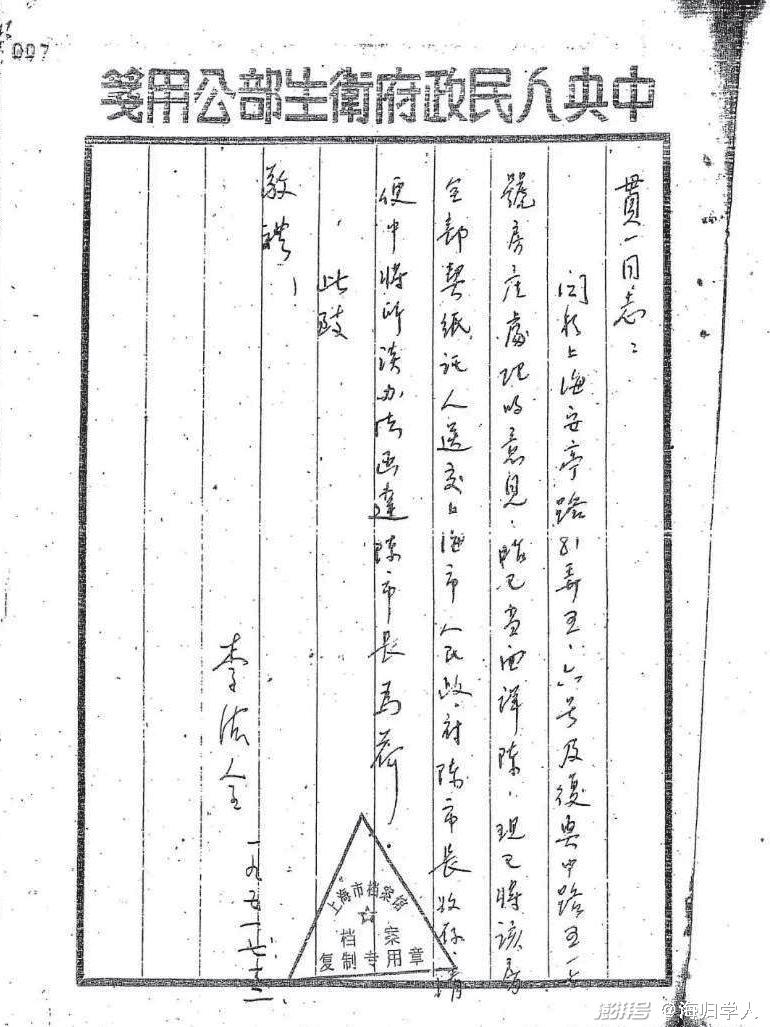 007
中央人民政府衛生部公用箋
贯一同志：
関於上海安亭路81弄五、六号及復興中路五一七
號房產處理的意見，皓已当面详陈，現已将该房
全部契纸託人送交上海市人民政府陈市長收存，请
便中将所谈办法函達陈市長為荷。
此致
敬禮！
李法全 一九五一、七、十二、
上海市档案馆
档案
复制专用章
澎湃号 @海归学人